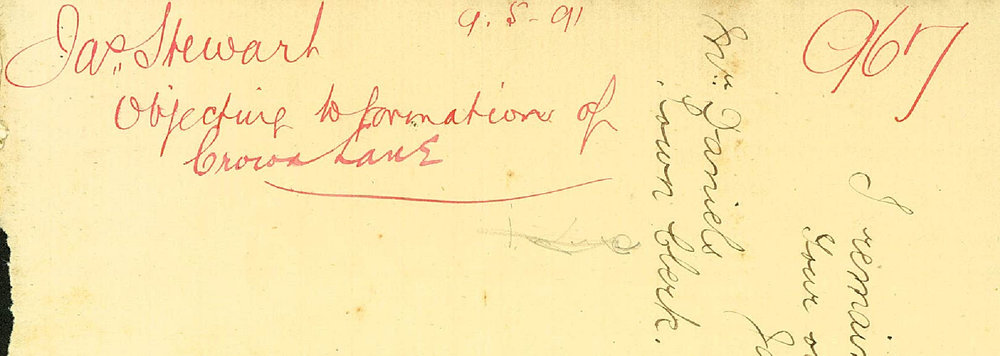 Jas. Stewart
9.5-91
967
Objecting to formation of
Crown Lane
Wm Daniels
Town Clerk.
I remain
Your o
Ja